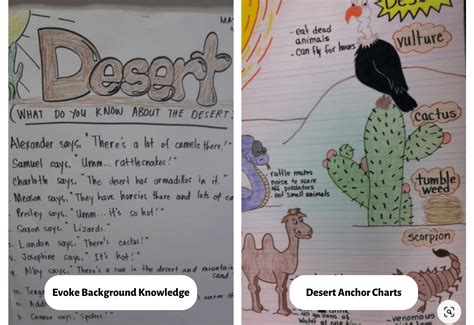 MA
Desert
(WHAT DO YOU KNOW ABOUT THE DESERT
Alexander says, "There's a lot of camels there!"
Samuel says, "Umm... rattlesnakes!"
Charlotte says, "The desert has armadillos in it."
says, "They have horsies there and lots of
Presley says, "Umm... it's so hot!"
Sason says, "Lizards."
Landon says, "There's cactus!"
Josephine says, "It's hot!"
Alby says, "There's a sun in the desert and mountains
sand
Connor says, "Spiders!"
Evoke Background Knowledge
DESE
- eat dead
animals
- can fly for hours
vulture
cactus
- rattle makes
noise to scare
off predators
- eat small animals
tumble
weed
scorpion
40 gallons of
- venomous
Desert Anchor Charts